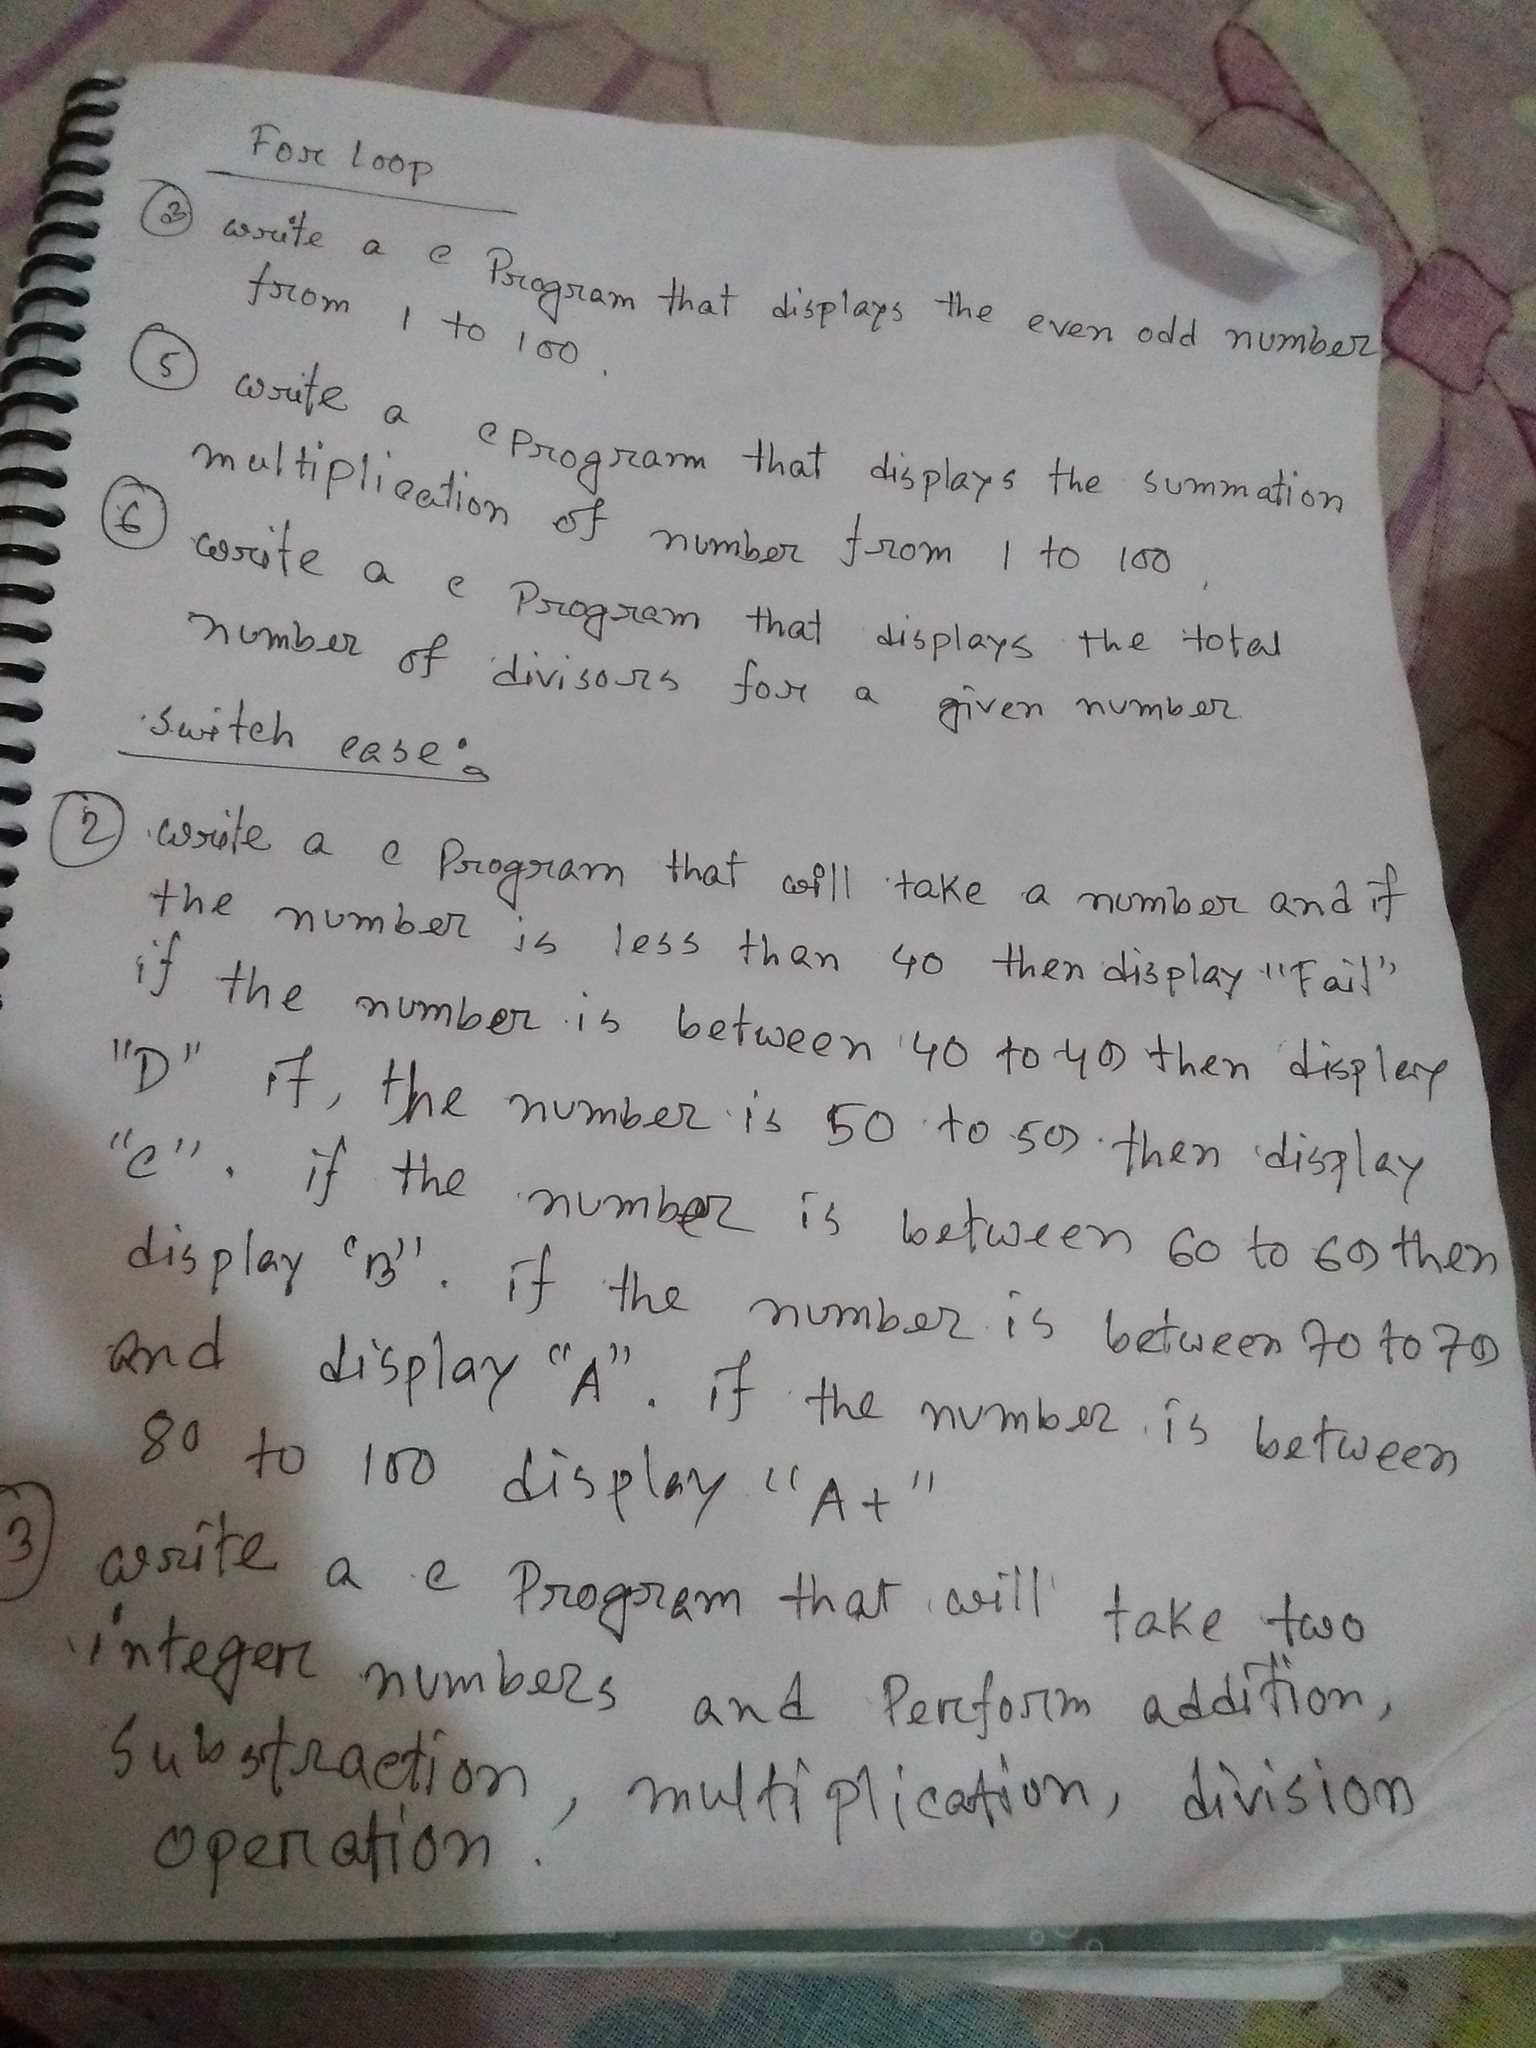 For Loop
③ write a c Program that displays the even odd number
from 1 to 100.
⑤ write a c Program that displays the summation
multiplication of number from 1 to 100.
⑥ write a c Program that displays the total
number of divisors for a given number
switch case:
② write a c Program that will take a number and if
the number is less than 40 then display "Fail"
if the number is between 40 to 49 then display
"D" if, the number is 50 to 59 then display
"C". if the number is between 60 to 69 then
display "B". if the number is between 70 to 79
and display "A". if the number is between
80 to 100 display "A+"
③ write a c Program that will take two
integer numbers and Perform addition,
Substraction, multiplication, division
operation.